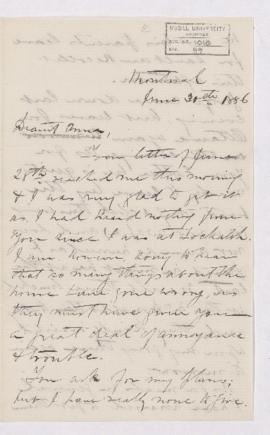 McGILL UNIVERSITY
ARCHIVES
ACC. NO. 1010
REF.
Montreal
June 30th 1886
Dearest Anna,
Your letter of June
28th reached me this morning
& I was very glad to get it
as I had heard nothing from
you since I was at
I am however sorry to hear
that so many things about the
house have gone wrong, as
they must have given you
a great deal of annoyance
& trouble.
You ask for my plans;
but I have really none to give.